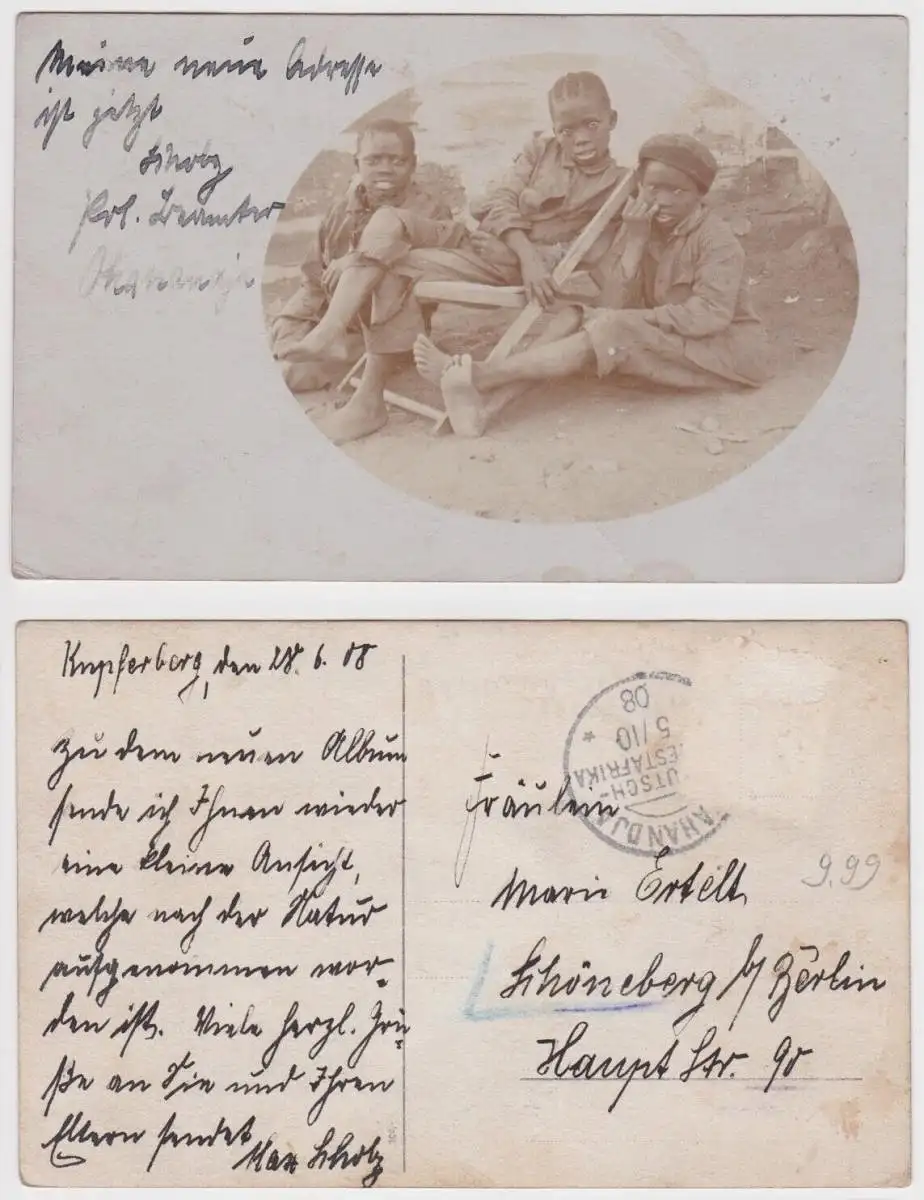 Meine neue Adresse
ist jetzt
Scholz
Pol. Beamter
Okahandja
Kupferberg, den 28. 6. 08
Zu dem neuen Album
sende ich Ihnen wieder
eine kleine Ansicht,
welche nach der Natur
aufgenommen wor-
den ist. Viele herzl. Grü-
ße an Sie und Ihren
Eltern sendet
Max Scholz
AHANDJA
UTSCH-
ESTAFRIKA
5/10
08
Fräulein
Marie Ertelt
Schöneberg b/ Berlin
Haupt Str. 90
9.99